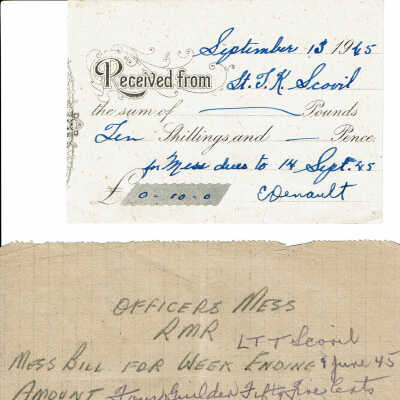 September 13 1945
Received from Lt. T. K. Scovil
the sum of — Pounds
Ten Shillings, and — Pence
for Mess dues to 14 Sept. 45
£ 0-10-0 C Denault
OFFICERS MESS
RMR
LT T Scovil
MESS BILL FOR WEEK ENDING 9 June 45
AMOUNT Four Guilder Fifty Five Cents